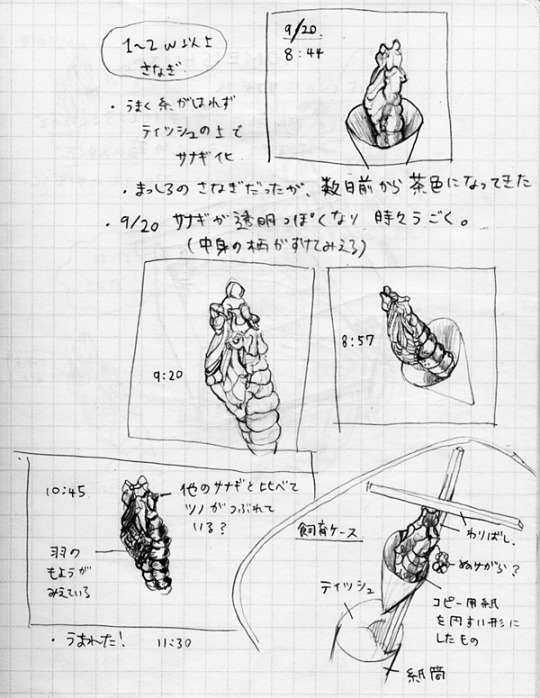 1〜2w以上
さなぎ
9/20
8:44
・うまく糸がはれず
ティッシュの上で
サナギ化
・まっしろのさなぎだったが、数日前から茶色になってきた
・9/20 サナギが透明っぽくなり 時々うごく。
(中身の柄がすけてみえる)
9:20
8:57
10:45
他のサナギと比べて
ツノがつぶれて
いる?
羽の
もようが
みえている
・うまれた! 11:30
飼育ケース
わりばし
ぬけがら?
ティッシュ
コピー用紙
を円すい形に
したもの
紙筒